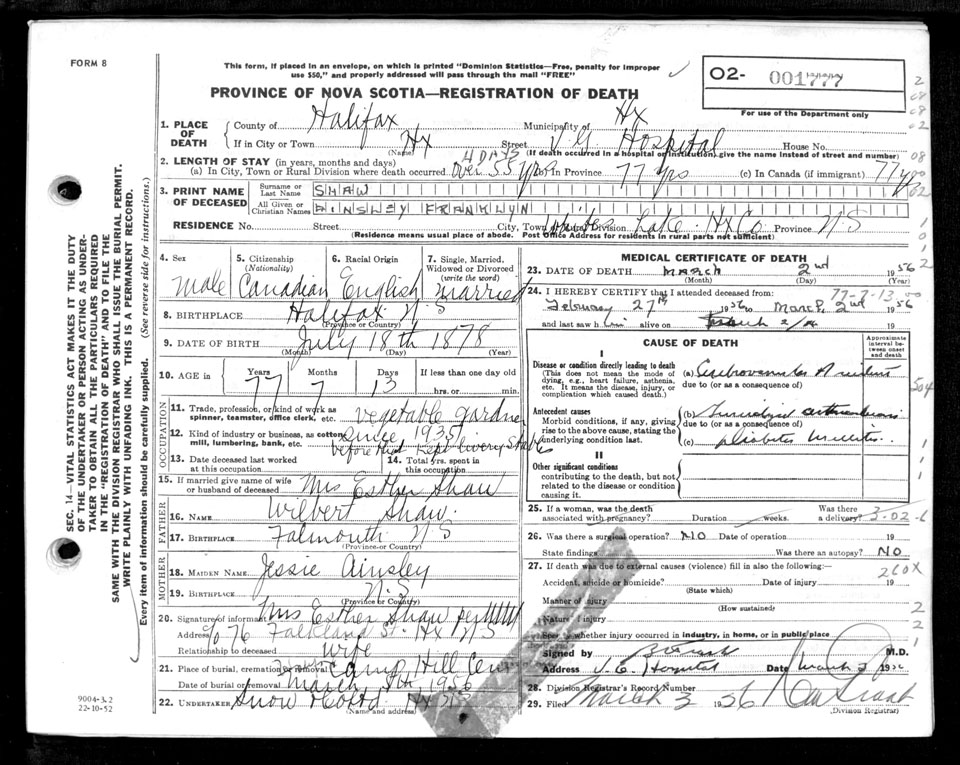 FORM 8
This form, if placed in an envelope, on which is printed "Dominion Statistics—Free, penalty for improper
use $50," and properly addressed will pass through the mail "FREE"
O2- 001777
For use of the Department only
PROVINCE OF NOVA SCOTIA—REGISTRATION OF DEATH
SEC. 14—VITAL STATISTICS ACT MAKES IT THE DUTY
OF THE UNDERTAKER OR PERSON ACTING AS UNDER-
TAKER TO OBTAIN ALL THE PARTICULARS REQUIRED
IN THE "REGISTRATION OF DEATH" AND TO FILE THE
SAME WITH THE DIVISION REGISTRAR WHO SHALL ISSUE THE BURIAL PERMIT.
WRITE PLAINLY WITH UNFADING INK. THIS IS A PERMANENT RECORD.
Every item of information should be carefully supplied. (See reverse side for instructions.)
1. PLACE OF DEATH County of Halifax Municipality of Hx
If in City or Town Hx Street V.G. Hospital House No.
(Name) (If death occurred in a hospital or institution, give the name instead of street and number)
2. LENGTH OF STAY (in years, months and days) 4 DAYS
(a) In City, Town or Rural Division where death occurred over 55 yrs (b) In Province 77 yrs (c) In Canada (if immigrant) 77 yrs
3. PRINT NAME OF DECEASED Surname or Last Name SHAW
All Given or Christian Names AINSLEY FRANKLYN
RESIDENCE No. Street City, Town or Rural Division Lake Hx Co Province N S
(Residence means usual place of abode. Post Office Address for residents in rural parts not sufficient)
4. Sex Male
5. Citizenship (Nationality) Canadian
6. Racial Origin English
7. Single, Married, Widowed or Divorced (write the word) Married
8. BIRTHPLACE Halifax N S
(Province or Country)
9. DATE OF BIRTH July 18th 1878
(Month) (Day) (Year)
10. AGE in Years 77 Months 7 Days 13 If less than one day old hrs. or min.
OCCUPATION
11. Trade, profession, or kind of work as spinner, teamster, office clerk, etc. Vegetable gardner
12. Kind of industry or business, as cotton mill, lumbering, bank, etc. Since 1935
before that Kept livery Stables
13. Date deceased last worked at this occupation
14. Total yrs. spent in this occupation
15. If married give name of wife or husband of deceased Mrs Esther Shaw
FATHER
16. NAME Wilbert Shaw
17. BIRTHPLACE Falmouth N S
(Province or Country)
MOTHER
18. MAIDEN NAME Jessie Ainsley
19. BIRTHPLACE N.S
(Province or Country)
20. Signature of informant Mrs Esther Shaw per
Address c/o 76 Falkland St. Hx N S
Relationship to deceased wife
21. Place of burial, cremation or removal Camp Hill Cem
Date of burial or removal March 1956
22. UNDERTAKER Snow Hx NS
(Name and address)
9004-3.2
22-10-52
MEDICAL CERTIFICATE OF DEATH
23. DATE OF DEATH MARCH 2nd 1956
(Month) (Day) (Year)
77-7-13
24. I HEREBY CERTIFY that I attended deceased from:
February 27th 1956 to March 2nd 1956
and last saw him alive on March 2/56 19
CAUSE OF DEATH
Approximate interval between onset and death
I
Disease or condition directly leading to death
(This does not mean the mode of dying, e.g., heart failure, asthenia, etc. It means the disease, injury, or complication which caused death.)
(a) Cerebrovascular Accident
due to (or as a consequence of)
Antecedent causes
Morbid conditions, if any, giving rise to the above cause, stating the underlying condition last.
(b) Generalized arteriosclerosis
due to (or as a consequence of)
(c) Diabetes Mellitus
II
Other significant conditions
contributing to the death, but not related to the disease or condition causing it.
25. If a woman, was the death associated with pregnancy? Duration weeks. Was there a delivery? 3-02-6
26. Was there a surgical operation? NO Date of operation 19
State findings Was there an autopsy? NO
27. If death was due to external causes (violence) fill in also the following:— 260X
Accident, suicide or homicide? Date of injury 19
(State which)
Manner of injury
(How sustained)
Nature of injury
Specify whether injury occurred in industry, in home, or in public place
Signed by M.D.
Address V.G. Hospital Date March 2 1956
28. Division Registrar's Record Number
29. Filed March 3 1956
(Division Registrar)